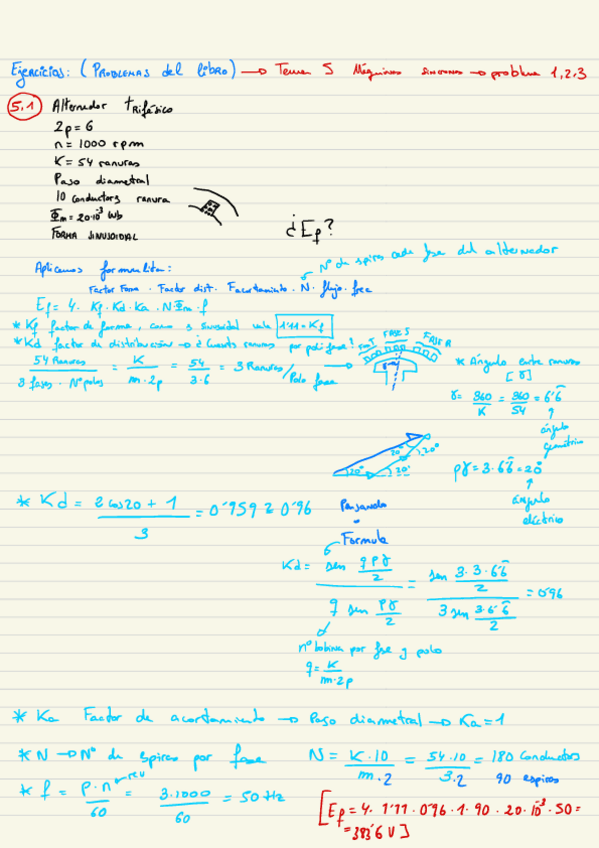 Ejercicios: (PROBLEMAS del libro) → Tema 5 Máquinas sincronas → problema 1,2,3
5.1 Alternador trifásico
2p = 6
n = 1000 rpm
K = 54 ranuras
Paso diametral
10 conductors ranura
Φm = 20·10⁻³ Wb
FORMA SINUSOIDAL
¿Ef?
Aplicamos formulita:
Nº de spiras cada fase del alternador
Factor Forma . Factor dist. Facortamiento . N . flujo . frec
Ef = 4 · Kf · Kd · Ka · N Φm · f
* Kf factor de forma, como es sinusoidal vale 1'11 = Kf
* Kd factor de distribución → ¿Cuantas ranuras por polo y fase?
54 Ranuras / 3 fases · Nº polos = K / m·2p = 54 / 3·6 = 3 Ranuras / Polo fase →
FASE T FASE S FASE R
* Ángulo entre ranuras [γ]
γ = 360/K = 360/54 = 6'6
ángulo geométrico
pγ = 3·6'6 = 20°
ángulo eléctrico
20° 20° 20° 20°
* Kd = 2 cos 20 + 1 / 3 = 0'959 ≈ 0'96
Formula
Kd = sen qpγ/2 / q sen pγ/2 = sen 3·3·6'6/2 / 3 sen 3·6'6/2 = 0'96
nº bobinas por fase y polo
q = K / m·2p
* Ka Factor de acortamiento → Paso diametral → Ka = 1
* N → Nº de espiras por fase N = K·10 / m·2 = 54·10 / 3·2 = 180 conductors
90 espiras
* f = p·n / 60 = 3·1000 / 60 = 50 Hz
rev
[Ef = 4 · 1'11 · 0'96 · 1 · 90 · 20·10⁻³ · 50 =
= 383'6 V]